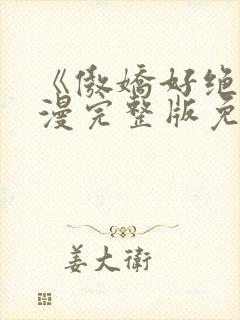 《傲娇好绝
漫完整版免
姜大衛